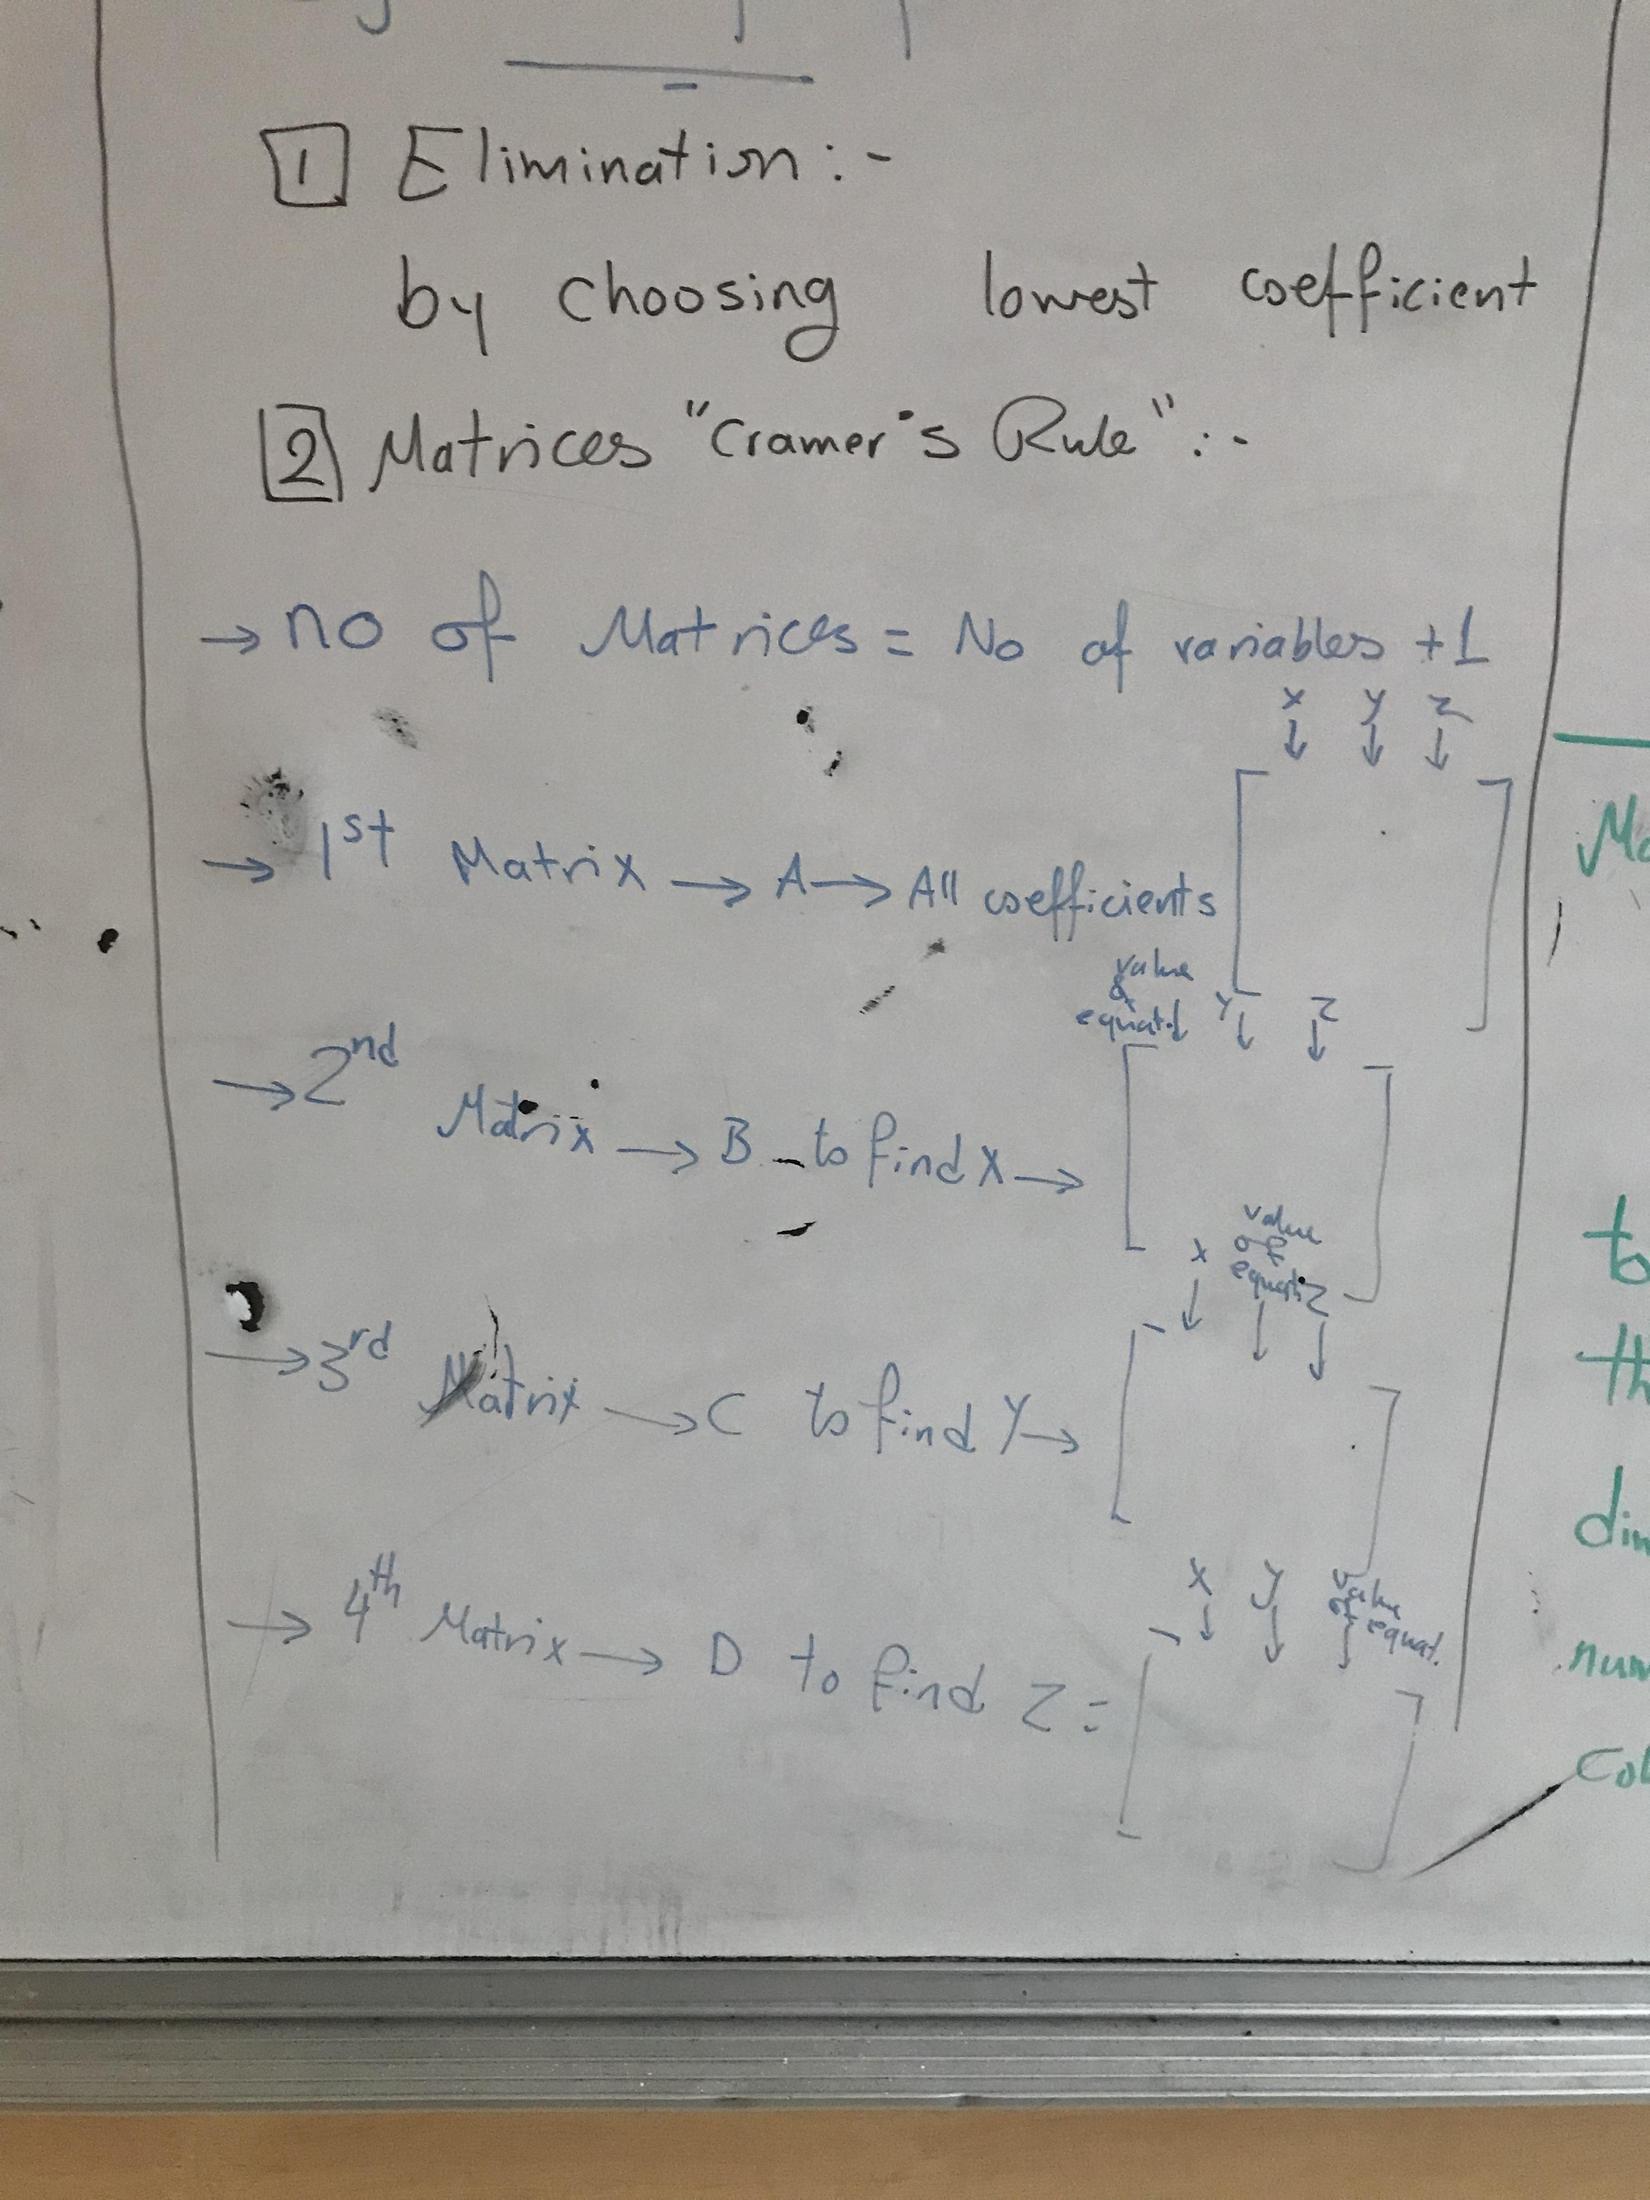 1 Elimination :-
by choosing lowest coefficient
2 Matrices "Cramer's Rule" :-
→ no of Matrices = No of variables +1
x y z
↓ ↓ ↓
→ 1st Matrix → A → All coefficients [ ]
value
of
equat. ↓ Y ↓ Z ↓
→ 2nd Matrix → B to find X → [ ]
x ↓ value
of
equati. ↓ Z ↓
→ 3rd Matrix → C to find Y → [ ]
x y value
of equat.
↓ ↓ ↓
→ 4th Matrix → D to find Z = [ ]
Ma
to
th
dim
num
col